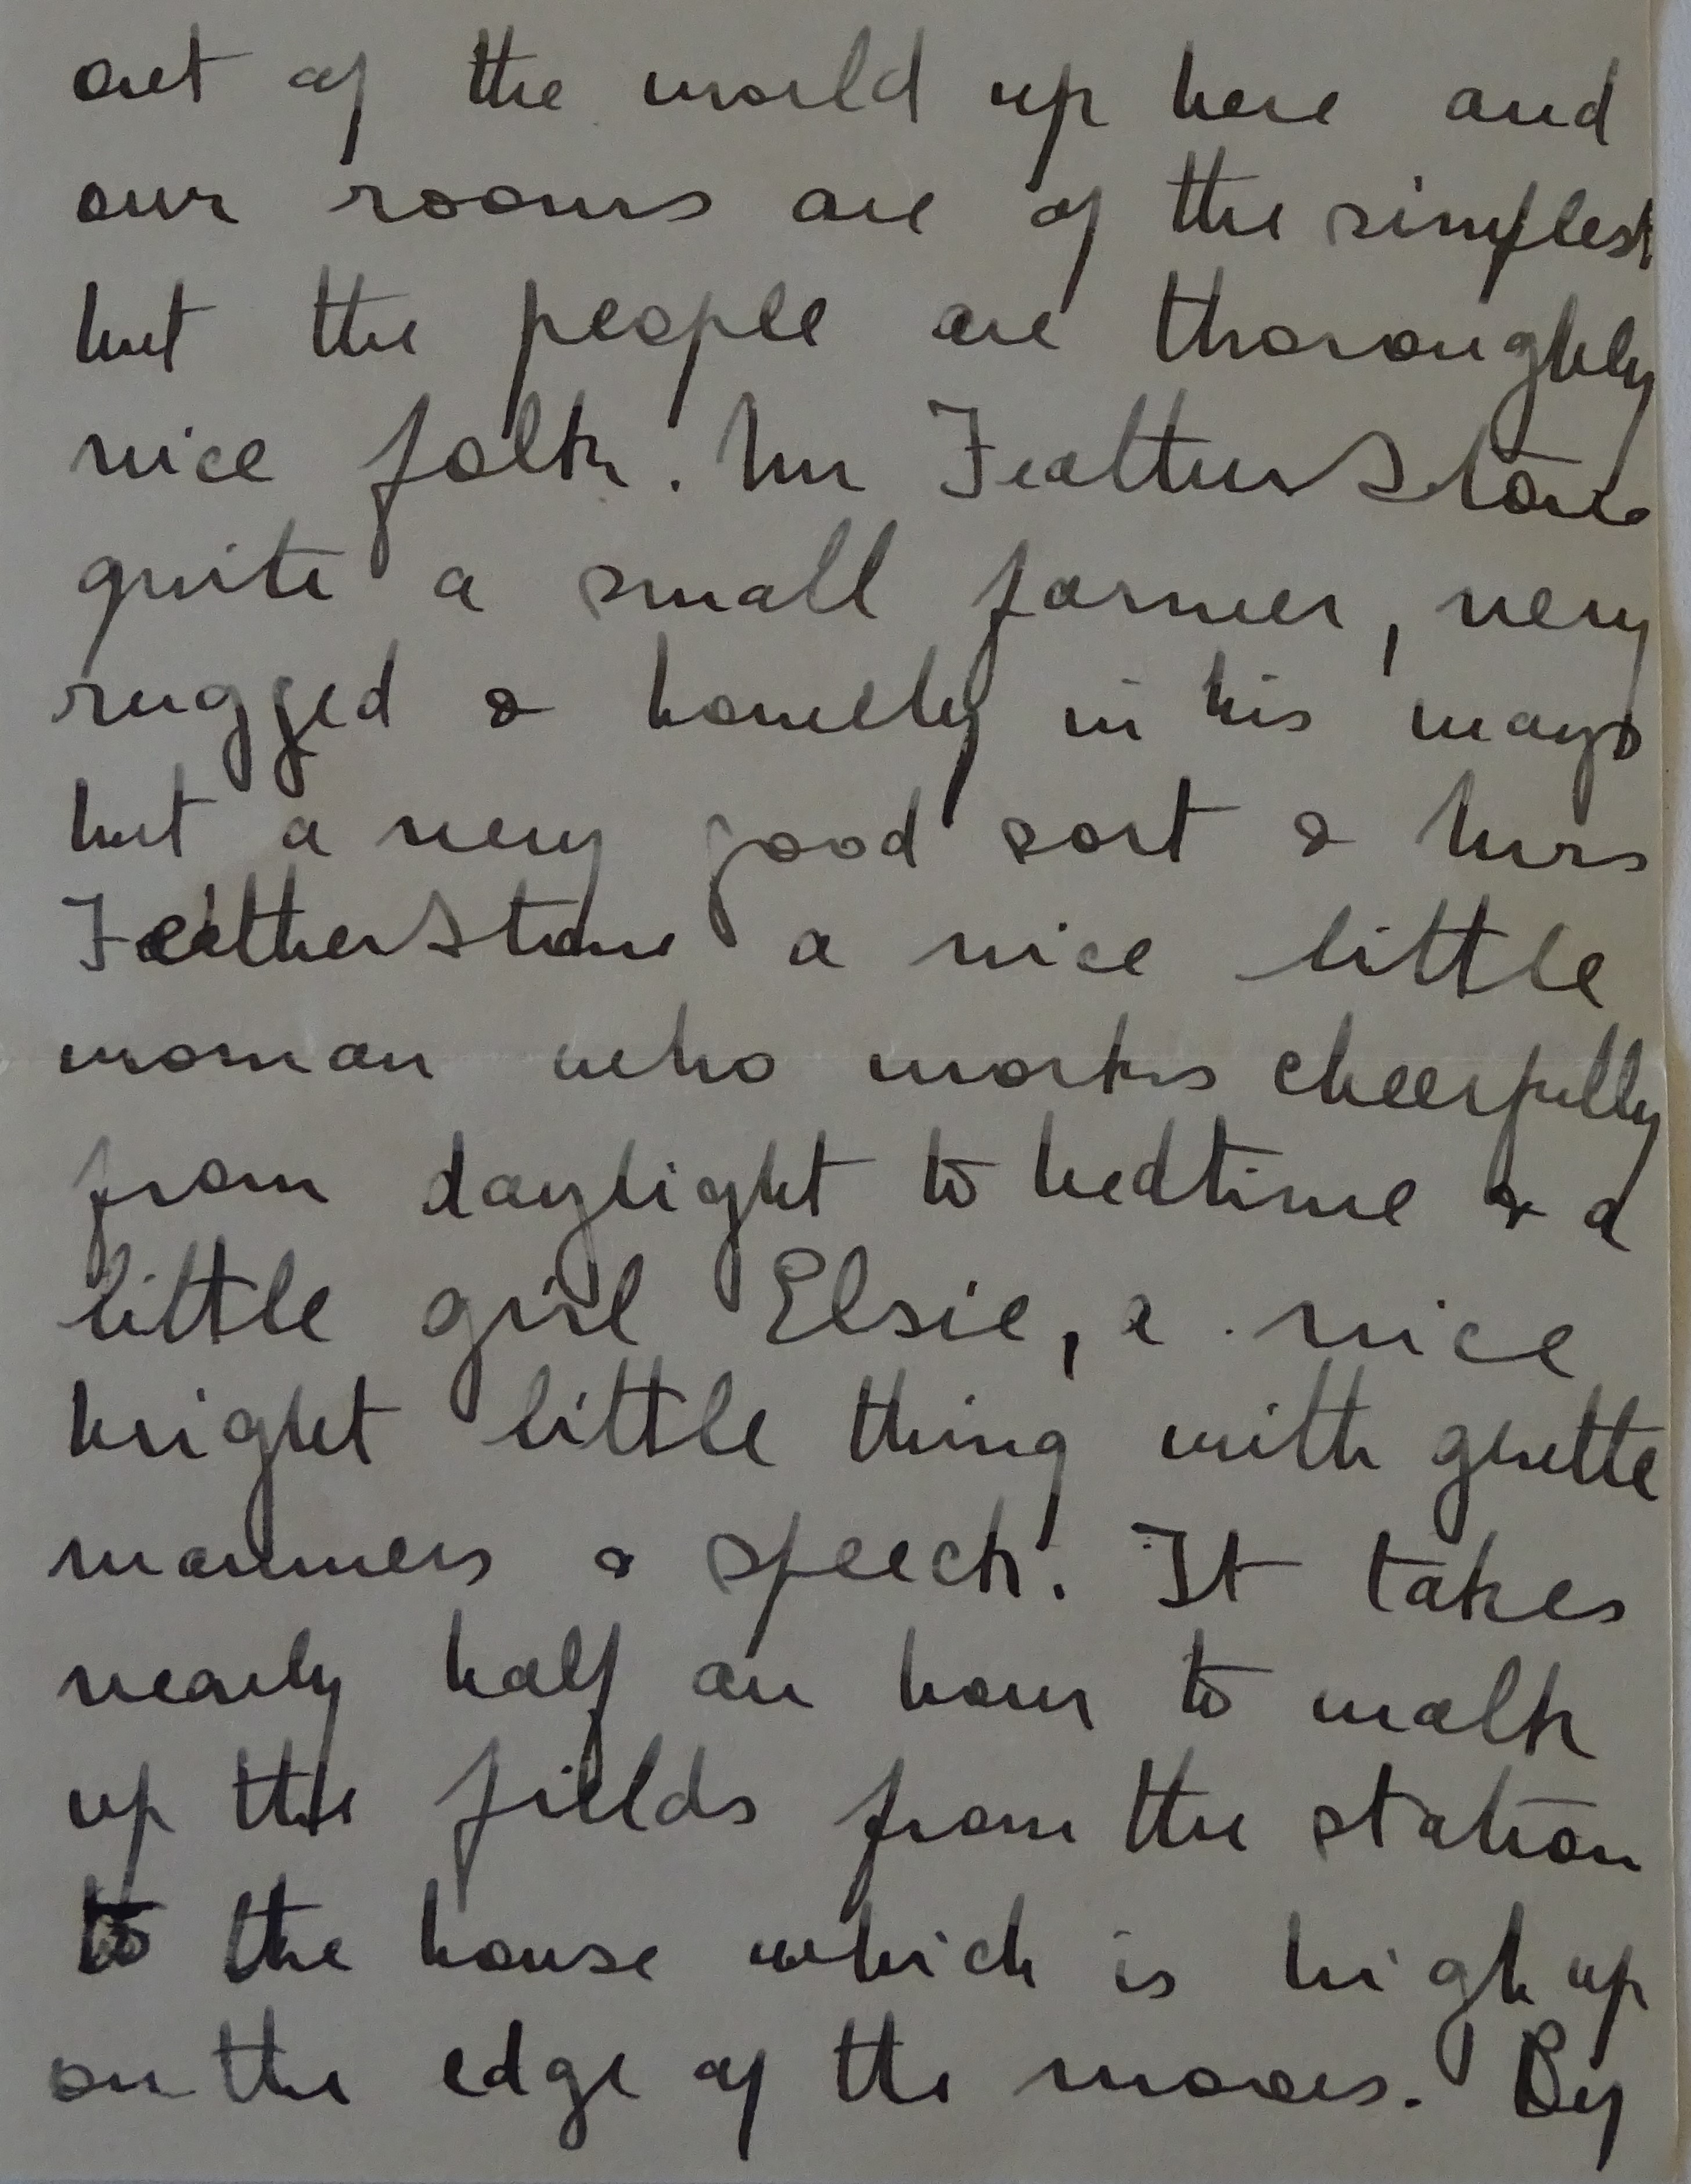 out of the world up here and
our rooms are of the simplest
but the people are thoroughly
nice folk. Mr FeatherStone
quite a small farmer, very
rugged & homely in his ways
but a very good sort & Mrs
FeatherStone a nice little
woman who works cheerfully
from daylight to bedtime & a
little girl Elsie, a nice
bright little thing with
manners & speech. It takes
nearly half an hour to walk
up the fields from the station
to the house which is high up
on the edge of the moors. By